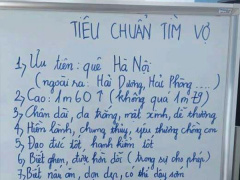 TIÊU CHUẨN TÌM VỢ
1, Ưu tiên: quê Hà Nội
(ngoài ra: Hải Dương, Hải Phòng .....)
2, Cao: 1m60↑ (không quá 1m7)
3, Chân dài, da trắng, mắt xinh, dễ thương
4, Hiền lành, chung thủy, yêu thương chồng con
5, Đạo đức tốt, hạnh kiểm tốt
6, Biết ghen, dứt hờn dỗi (trong sự cho phép)
7, Biết nấu ăn, dọn dẹp, có thể dậy sớm